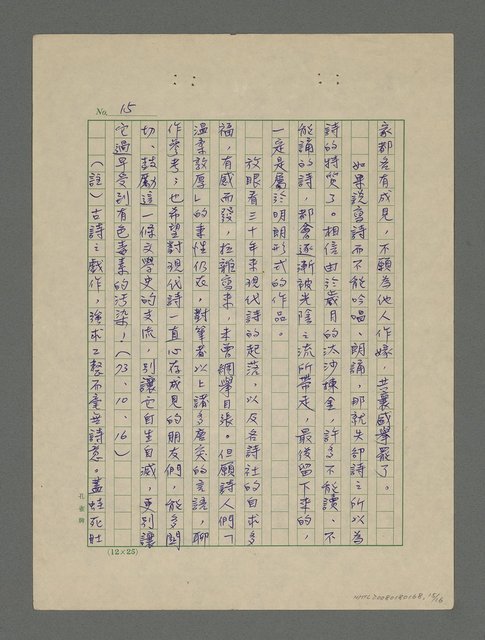 No. 15
家都各有成見，不願為他人作嫁，共襄盛舉罷了。
如果說寫詩而不能吟唱、朗誦，那就失卻詩之所以為
詩的特質了。相信由於歲月的汰沙揀金，許多不能讀、不
能誦的詩，都會逐漸被光陰之流所帶走，最後留下來的，
一定是屬於明朗形式的作品。
放眼看三十年來現代詩的起落，以及各詩社的自求多
福，有感而發，拉雜寫來，未曾綱舉目張。但願詩人們「
溫柔敦厚」的秉性仍在，對筆者以上諸多唐突的言語，聊
作參考；也希望對現代詩一直心存成見的朋友們，能多關
切、鼓勵這一條文學史的支流，別讓它自生自滅，更別讓
它過早受到有色毒素的污染！（73、10、16）
（註）古詩之戲作，強求工整不董無詩意。蓋蛙死肚
孔雀牌
(12×25)
NMTL20080180168, 15/16